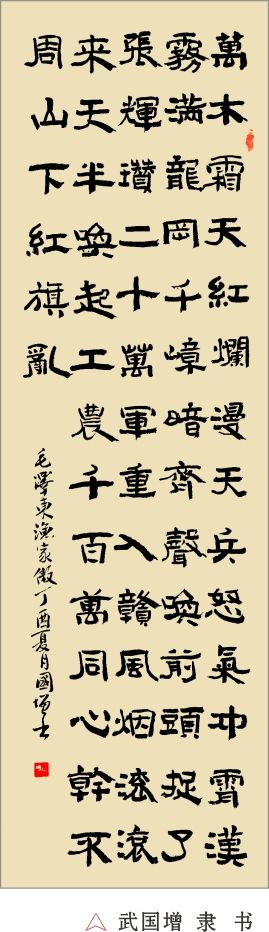 萬木霜天紅爛漫天兵怒氣冲霄漢
霧满龍岡千嶂暗齊聲唤前頭捉了
張輝瓚二十萬軍重入贛風烟滚滚
來天半唤起工農千百萬同心幹不
周山下紅旗亂
毛澤東漁家傲丁酉夏月國增書
武国增 隶 书